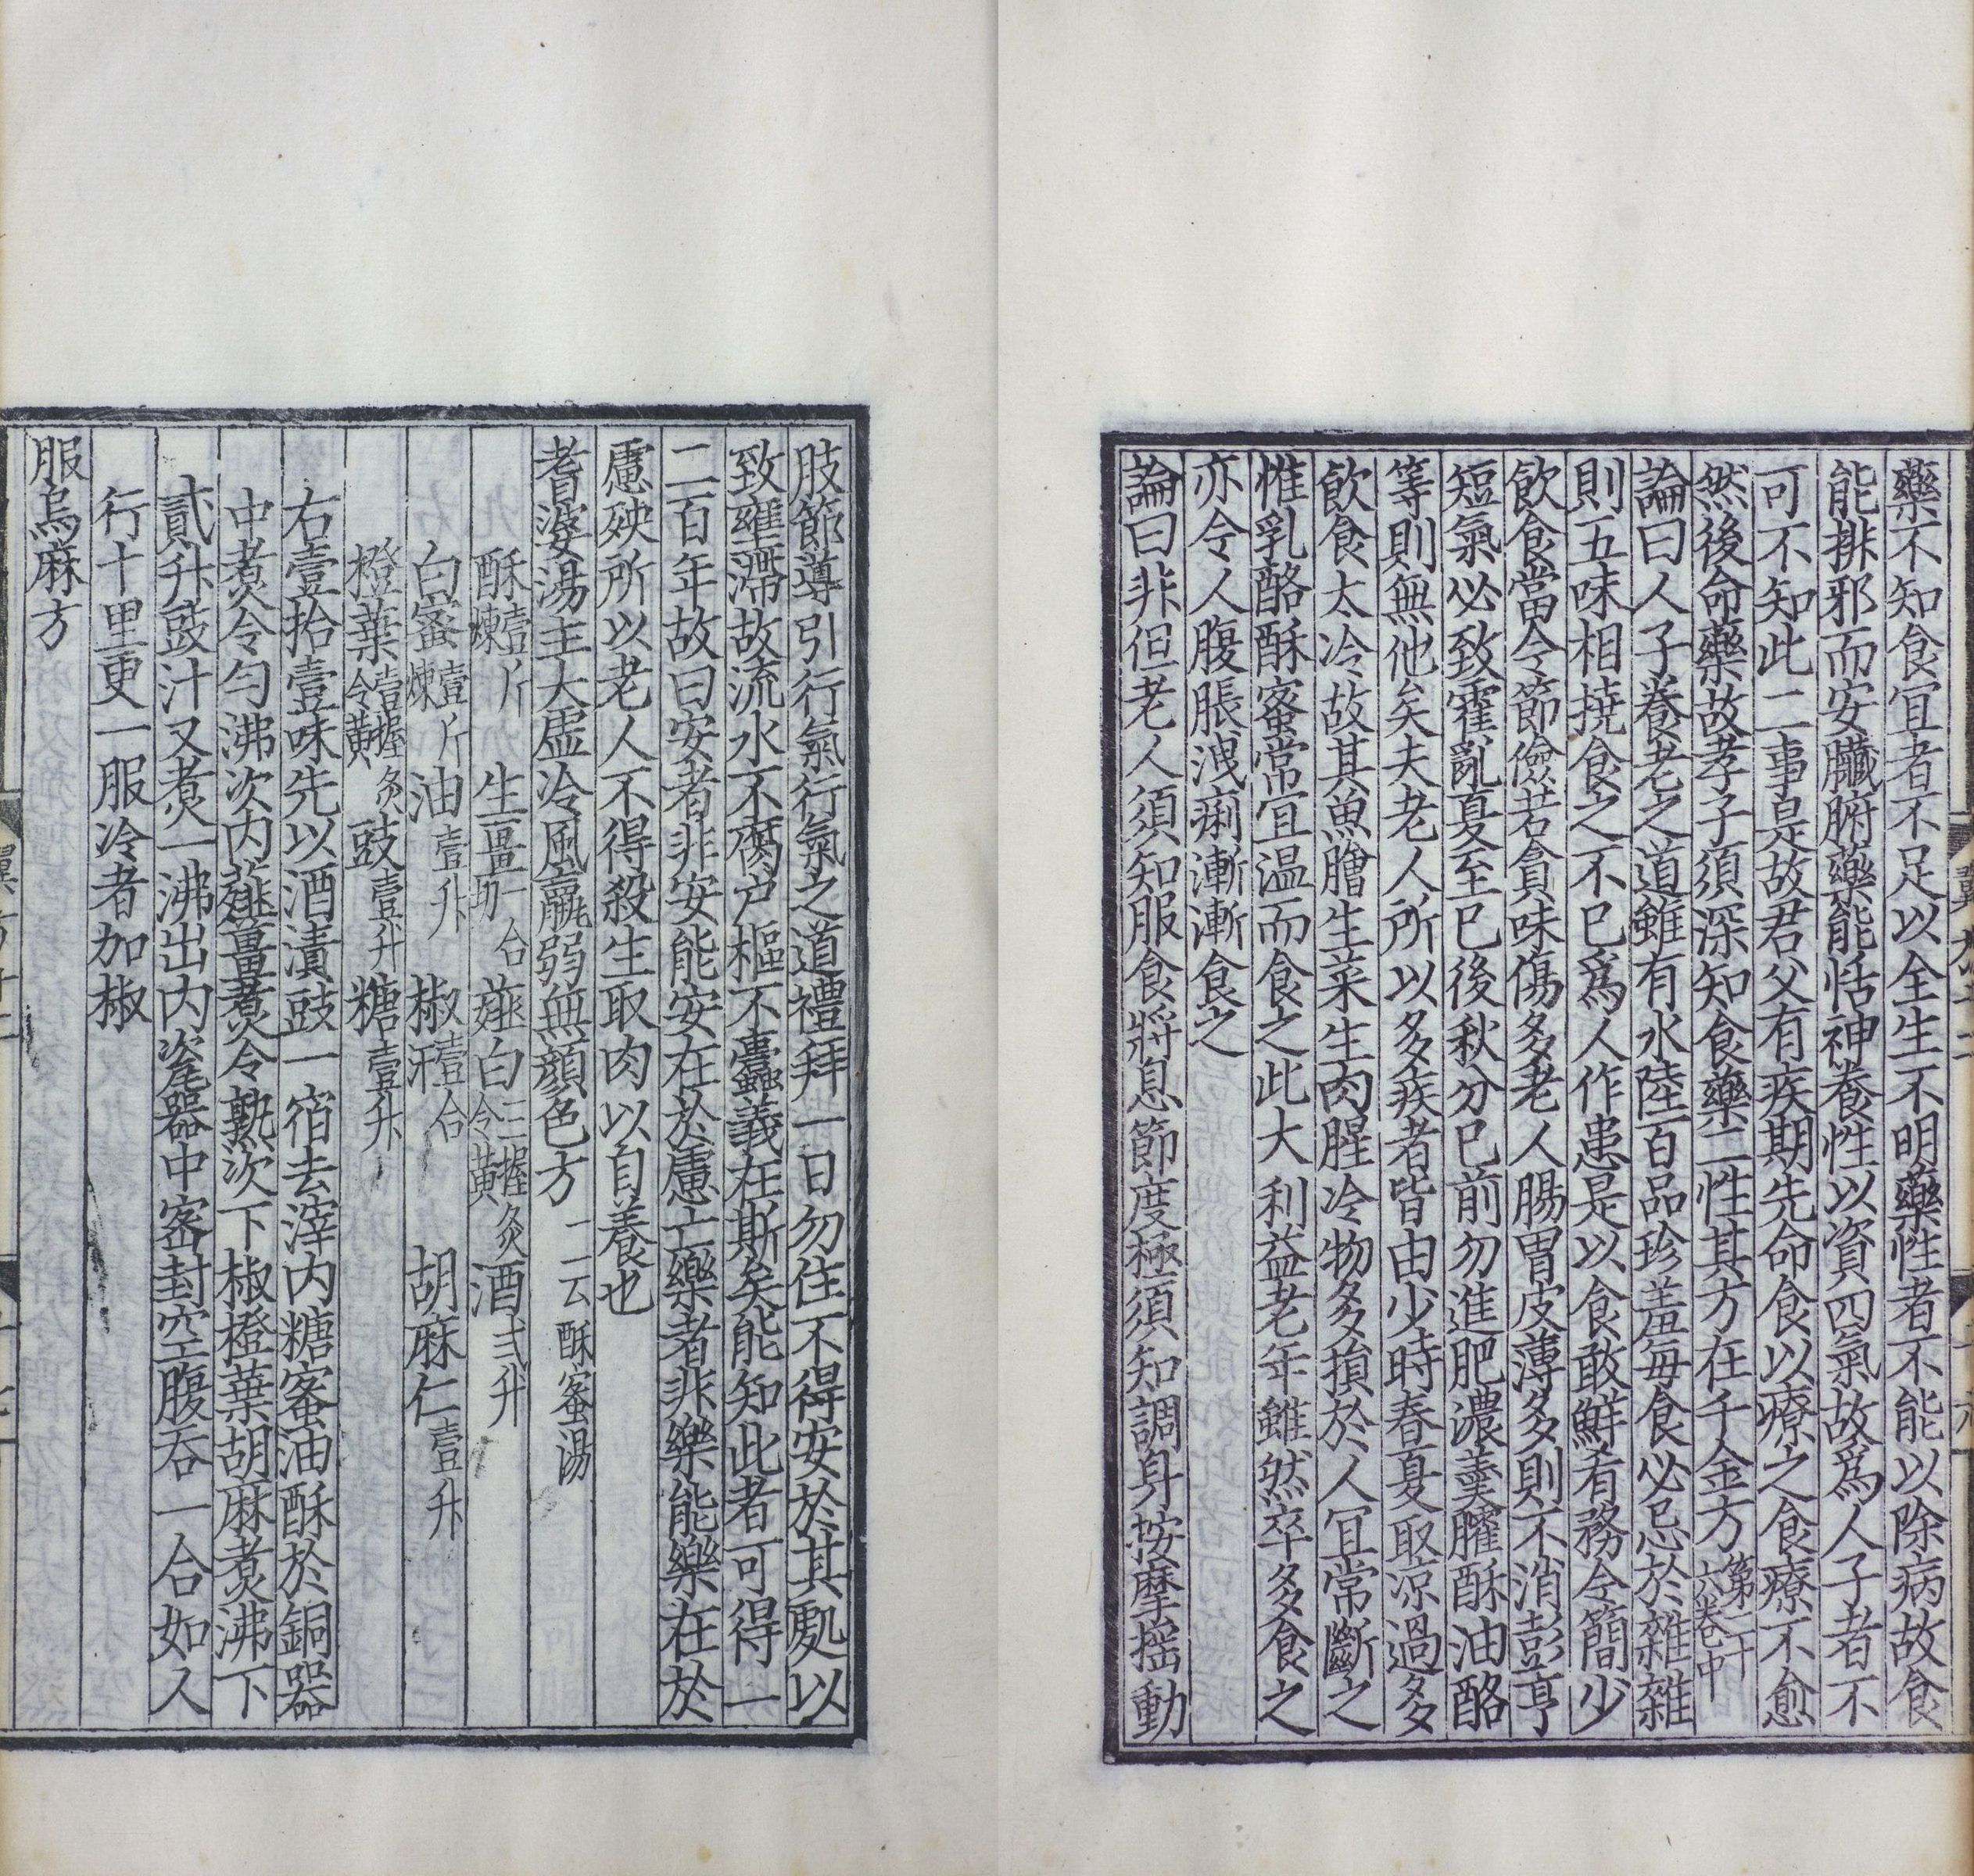 藥不知食宜者不足以全生不明藥性者不能以除病故食
能排邪而安臟腑藥能恬神養性以資四氣故爲人子者不
可不知此二事是故君父有疾期先命食以療之食療不愈
然後命藥故孝子須深知食藥二性其方在千金方第二十六卷中
論曰人子養老之道雖有水陸百品珍羞每食必忌於雜雜
則五味相撓食之不已爲人作患是以食敢鮮肴務令簡少
飲食當令節儉若貪味傷多老人腸胃皮薄多則不消彭亨
短氣必致霍亂夏至已後秋分已前勿進肥濃羹臛酥油酪
等則無他矣夫老人所以多疾者皆由少時春夏取涼過多
飲食太冷故其魚膾生菜生肉腥冷物多損於人宜常斷之
惟乳酪酥蜜常宜温而食之此大利益老年雖然卒多食之
亦令人腹脹洩痢漸漸食之
論曰非但老人須知服食將息節度極須知調身按摩摇動
肢節導引行氣行氣之道禮拜一日勿住不得安於其處以
致壅滯故流水不腐户樞不蠹義在斯矣能知此者可得一
二百年故曰安者非安能安在於慮亡樂者非樂能樂在於
慮殃所以老人不得殺生取肉以自養也
耆婆湯主大虚冷風羸弱無顔色方一云酥蜜湯
酥壹斤煉 生薑一合切 薤白三握炙令黄 酒弍升
白蜜壹斤煉 油壹升 椒壹合汗 胡麻仁壹升
橙葉壹握炙令黄 豉壹升 糖壹升
右壹拾壹味先以酒漬豉一宿去滓内糖蜜油酥於銅器
中煮令匀沸次内薤薑煮令熟次下椒橙葉胡麻煮沸下
貳升豉汁又煮一沸出内瓷器中密封空腹吞一合如人
行十里更一服冷者加椒
服烏麻方